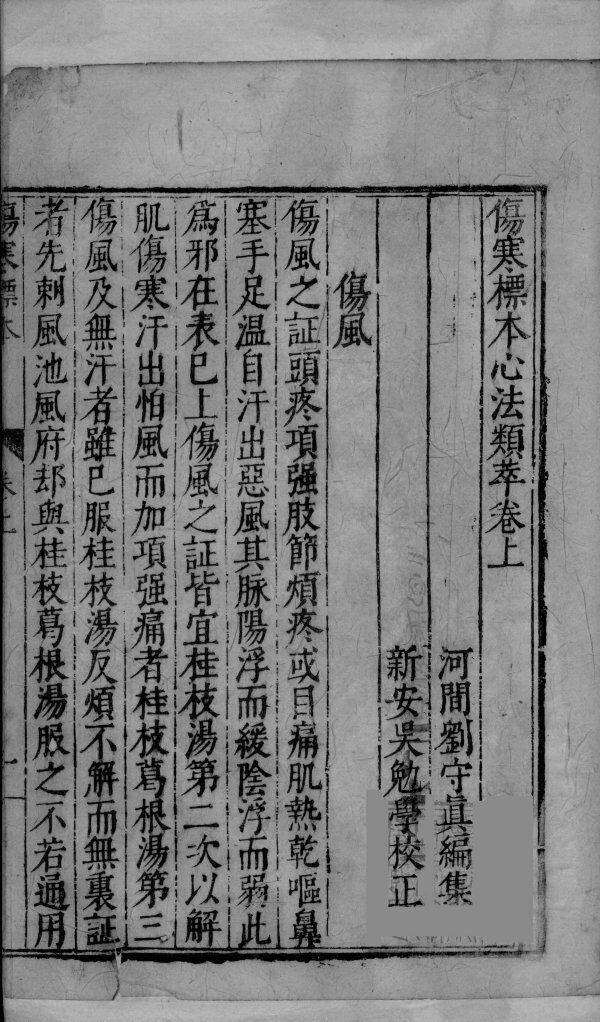 傷寒標本心法類萃卷上
河間劉守眞編集
新安吳勉學校正
傷風
傷風之証頭疼項强肢節煩疼或目痛肌熱乾嘔鼻
塞手足温自汗出惡風其脉陽浮而緩陰浮而弱此
爲邪在表巳上傷風之証皆宜桂枝湯第二次以解
肌傷寒汗出怕風而加項强痛者桂枝葛根湯第三
傷風及無汗者雖巳服桂枝湯反煩不解而無裏証
者先刺風池風府却與桂枝葛根湯服之不若通用
傷寒標本 卷上 一